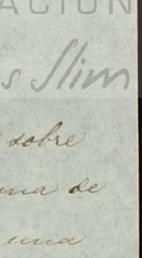 ACION
s Slim
sobre
ma de
una